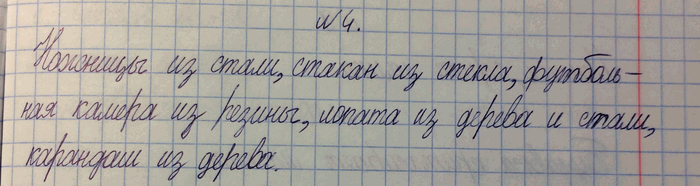 № 4.
Ножницы из стали, стакан из стекла, футболь-
ная камера из резины, лопата из дерева и стали,
карандаш из дерева.